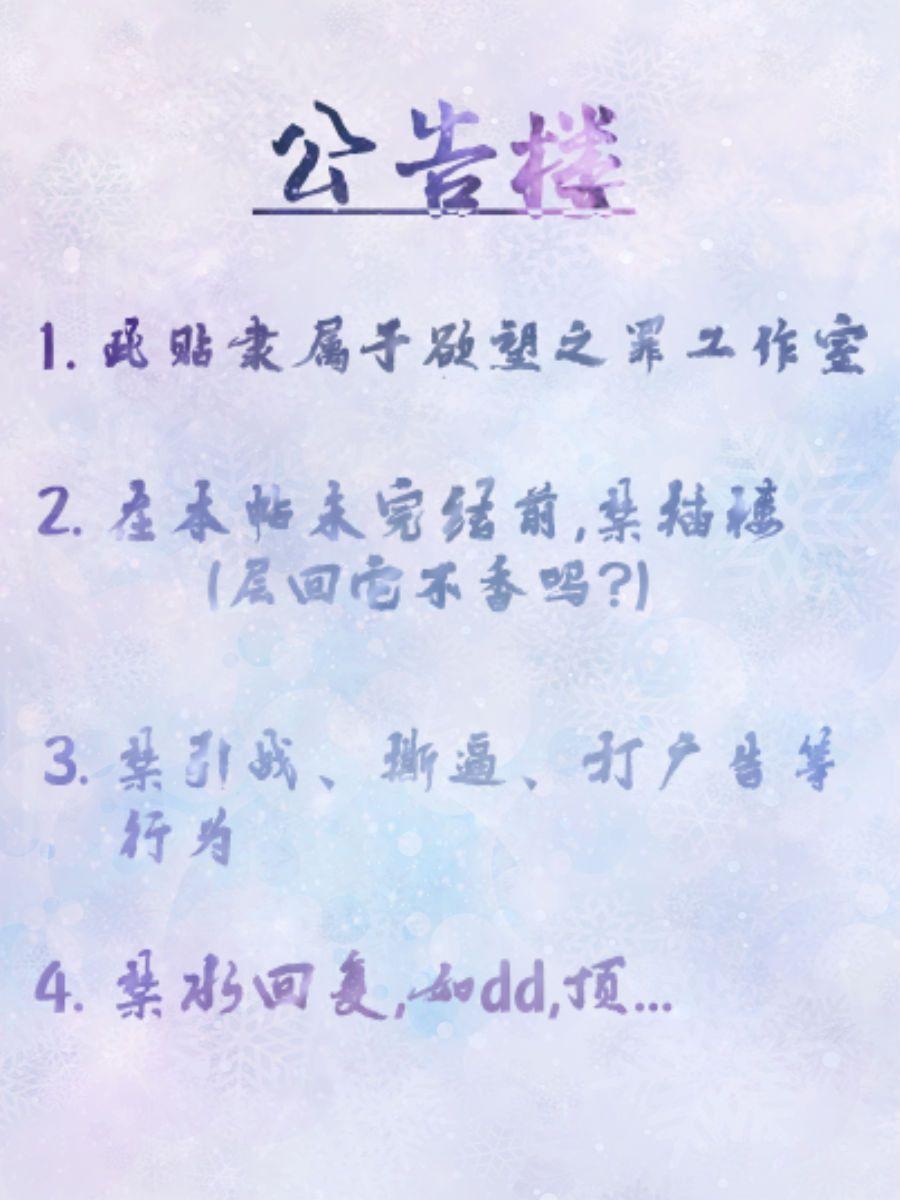 公告楼
1. 此贴隶属于欲望之罪工作室
2. 在本帖未完结前,禁插楼
(层回它不香吗?)
3. 禁引战、撕逼、打广告等
行为
4. 禁水回复,如dd,顶...